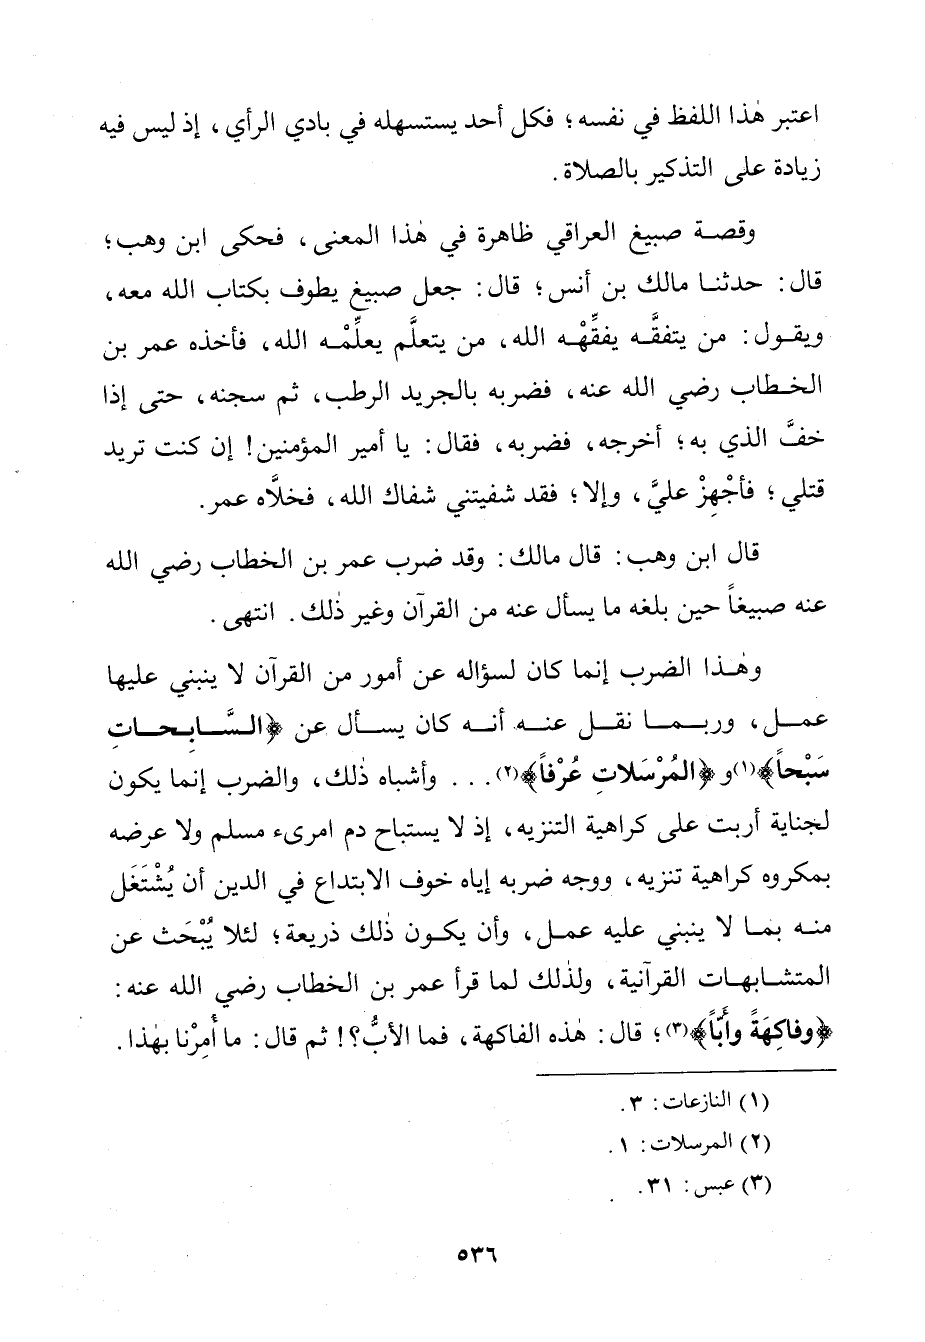 اعتبر هٰذا اللفظ في نفسه؛ فكل أحد يستسهله في بادي الرأي، إذ ليس فيه
زيادة على التذكير بالصلاة.
وقصة صبيغ العراقي ظاهرة في هٰذا المعنى، فحكى ابن وهب؛
قال: حدثنا مالك بن أنس؛ قال: جعل صبيغ يطوف بكتاب الله معه،
ويقول: من يتفقَّه يفقِّهْه الله، من يتعلَّم يعلِّمْه الله، فأخذه عمر بن
الخطاب رضي الله عنه، فضربه بالجريد الرطب، ثم سجنه، حتى إذا
خفَّ الذي به؛ أخرجه، فضربه، فقال: يا أمير المؤمنين! إن كنت تريد
قتلي؛ فأجْهِزْ عليَّ، وإلا؛ فقد شفيتني شفاك الله، فخلَّاه عمر.
قال ابن وهب: قال مالك: وقد ضرب عمر بن الخطاب رضي الله
عنه صبيغاً حين بلغه ما يسأل عنه من القرآن وغير ذٰلك. انتهى.
وهٰذا الضرب إنما كان لسؤاله عن أمور من القرآن لا ينبني عليها
عمل، وربما نقل عنه أنه كان يسأل عن ﴿السَّابِحات
سَبْحاً﴾(١) و ﴿المُرْسَلاتِ عُرْفاً﴾(٢)... وأشباه ذٰلك، والضرب إنما يكون
لجناية أربت على كراهية التنزيه، إذ لا يستباح دم امرىء مسلم ولا عرضه
بمكروه كراهية تنزيه، ووجه ضربه إياه خوف الابتداع في الدين أن يُشْتَغَل
منه بما لا ينبني عليه عمل، وأن يكون ذٰلك ذريعة؛ لئلا يُبْحَث عن
المتشابهات القرآنية، ولذٰلك لما قرأ عمر بن الخطاب رضي الله عنه:
﴿وفاكِهَةً وأَبّاً﴾(٣)؛ قال: هٰذه الفاكهة، فما الأبُّ؟! ثم قال: ما أُمِرْنا بهٰذا.
(١) النازعات: ٣.
(٢) المرسلات: ١.
(٣) عبس: ٣١.
٥٣٦